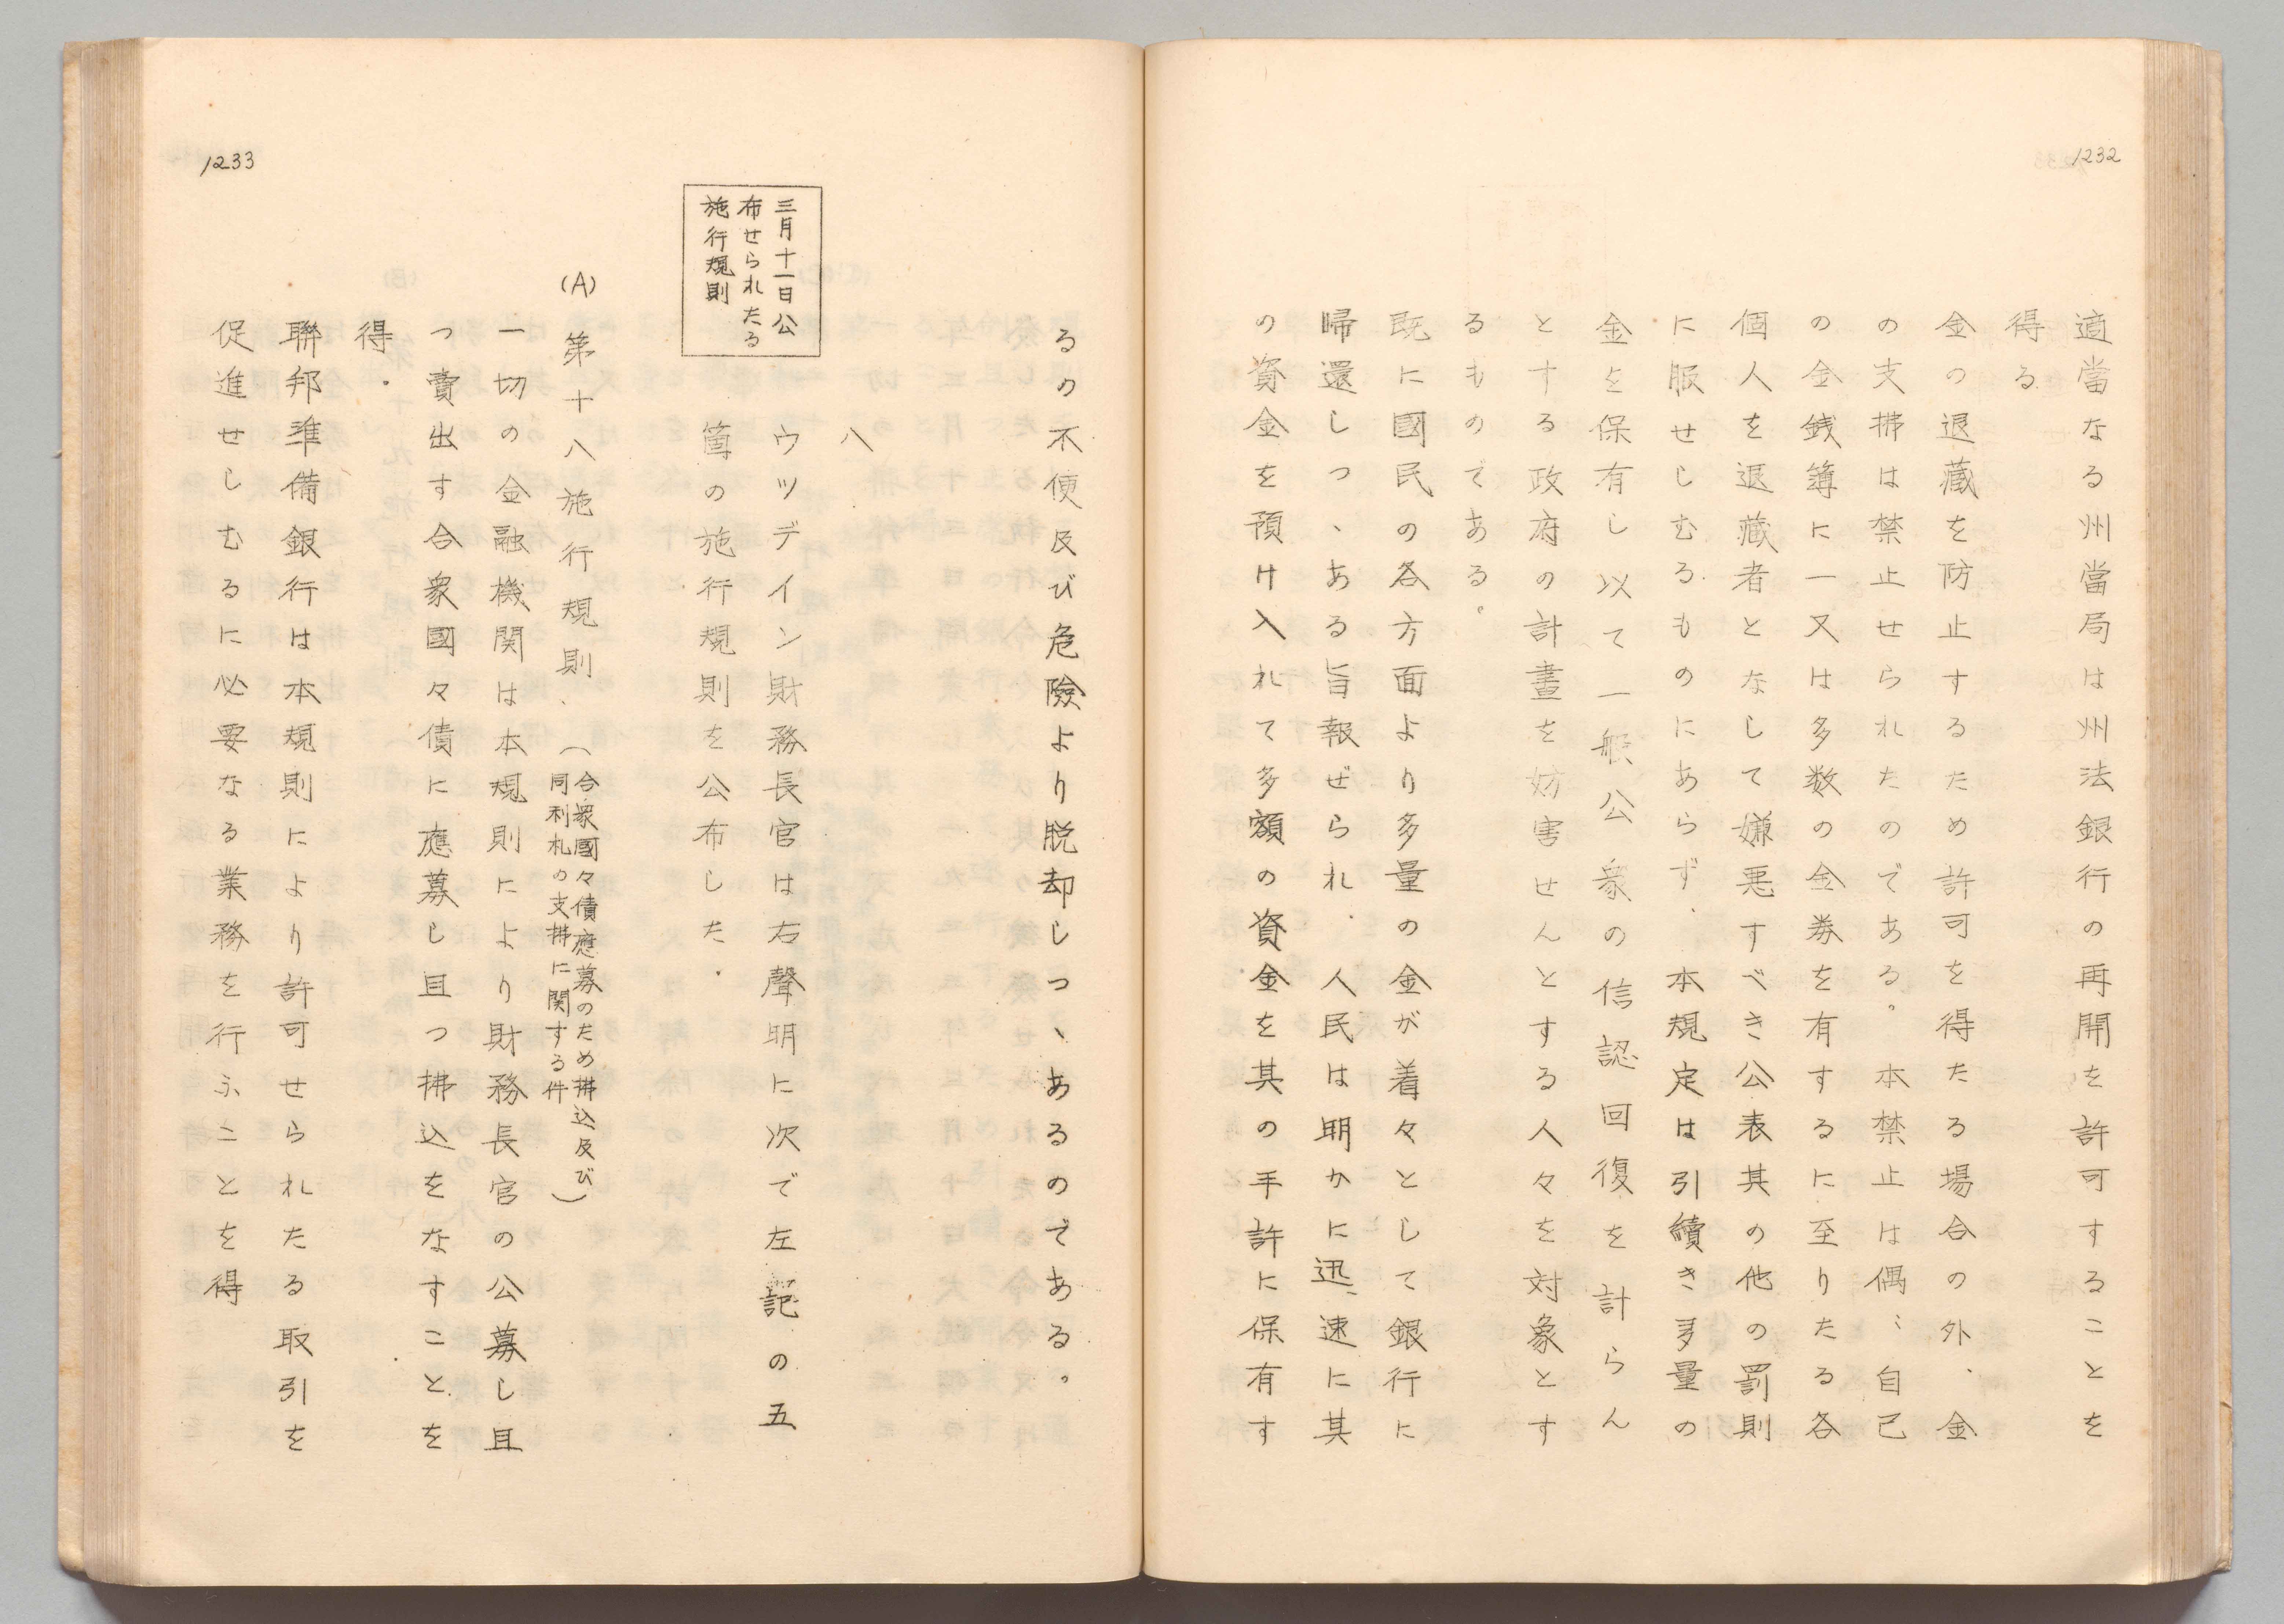 1232
適當なる州當局は州法銀行の再開を許可することを
得る
金の退藏を防止するため許可を得たる場合の外、金
の支拂は禁止せられたのである。本禁止は偶〻自己
の金銭簿に一又は多数の金券を有するに至りたる各
個人を退藏者となして嫌悪すべき公表其の他の罰則
に服せしむるものにあらず、本規定は引續き多量の
金を保有し以て一般公衆の信認回復を計らん
とする政府の計畫を妨害せんとする人々を対象とす
るものである。
既に國民の各方面より多量の金が着々として銀行に
帰還しつゝある旨報ぜられ、人民は明かに迅速に其
の資金を預け入れて多額の資金を其の手許に保有す
1233
るの不便及び危險より脱却しつゝあるのである。
八
三月十一日公
布せられたる
施行規則
ウツデイン財務長官は右聲明に次で左記の五
箇の施行規則を公布した.
(A)
第十八施行規則、(合衆國々債應募のため拂込及び
同利札の支拂に関する件)
一切の金融機関は本規則により財務長官の公募し且
つ賣出す合衆國々債に應募し且つ拂込をなすことを
得.
聯邦準備銀行は本規則により許可せられたる取引を
促進せしむるに必要なる業務を行ふことを得